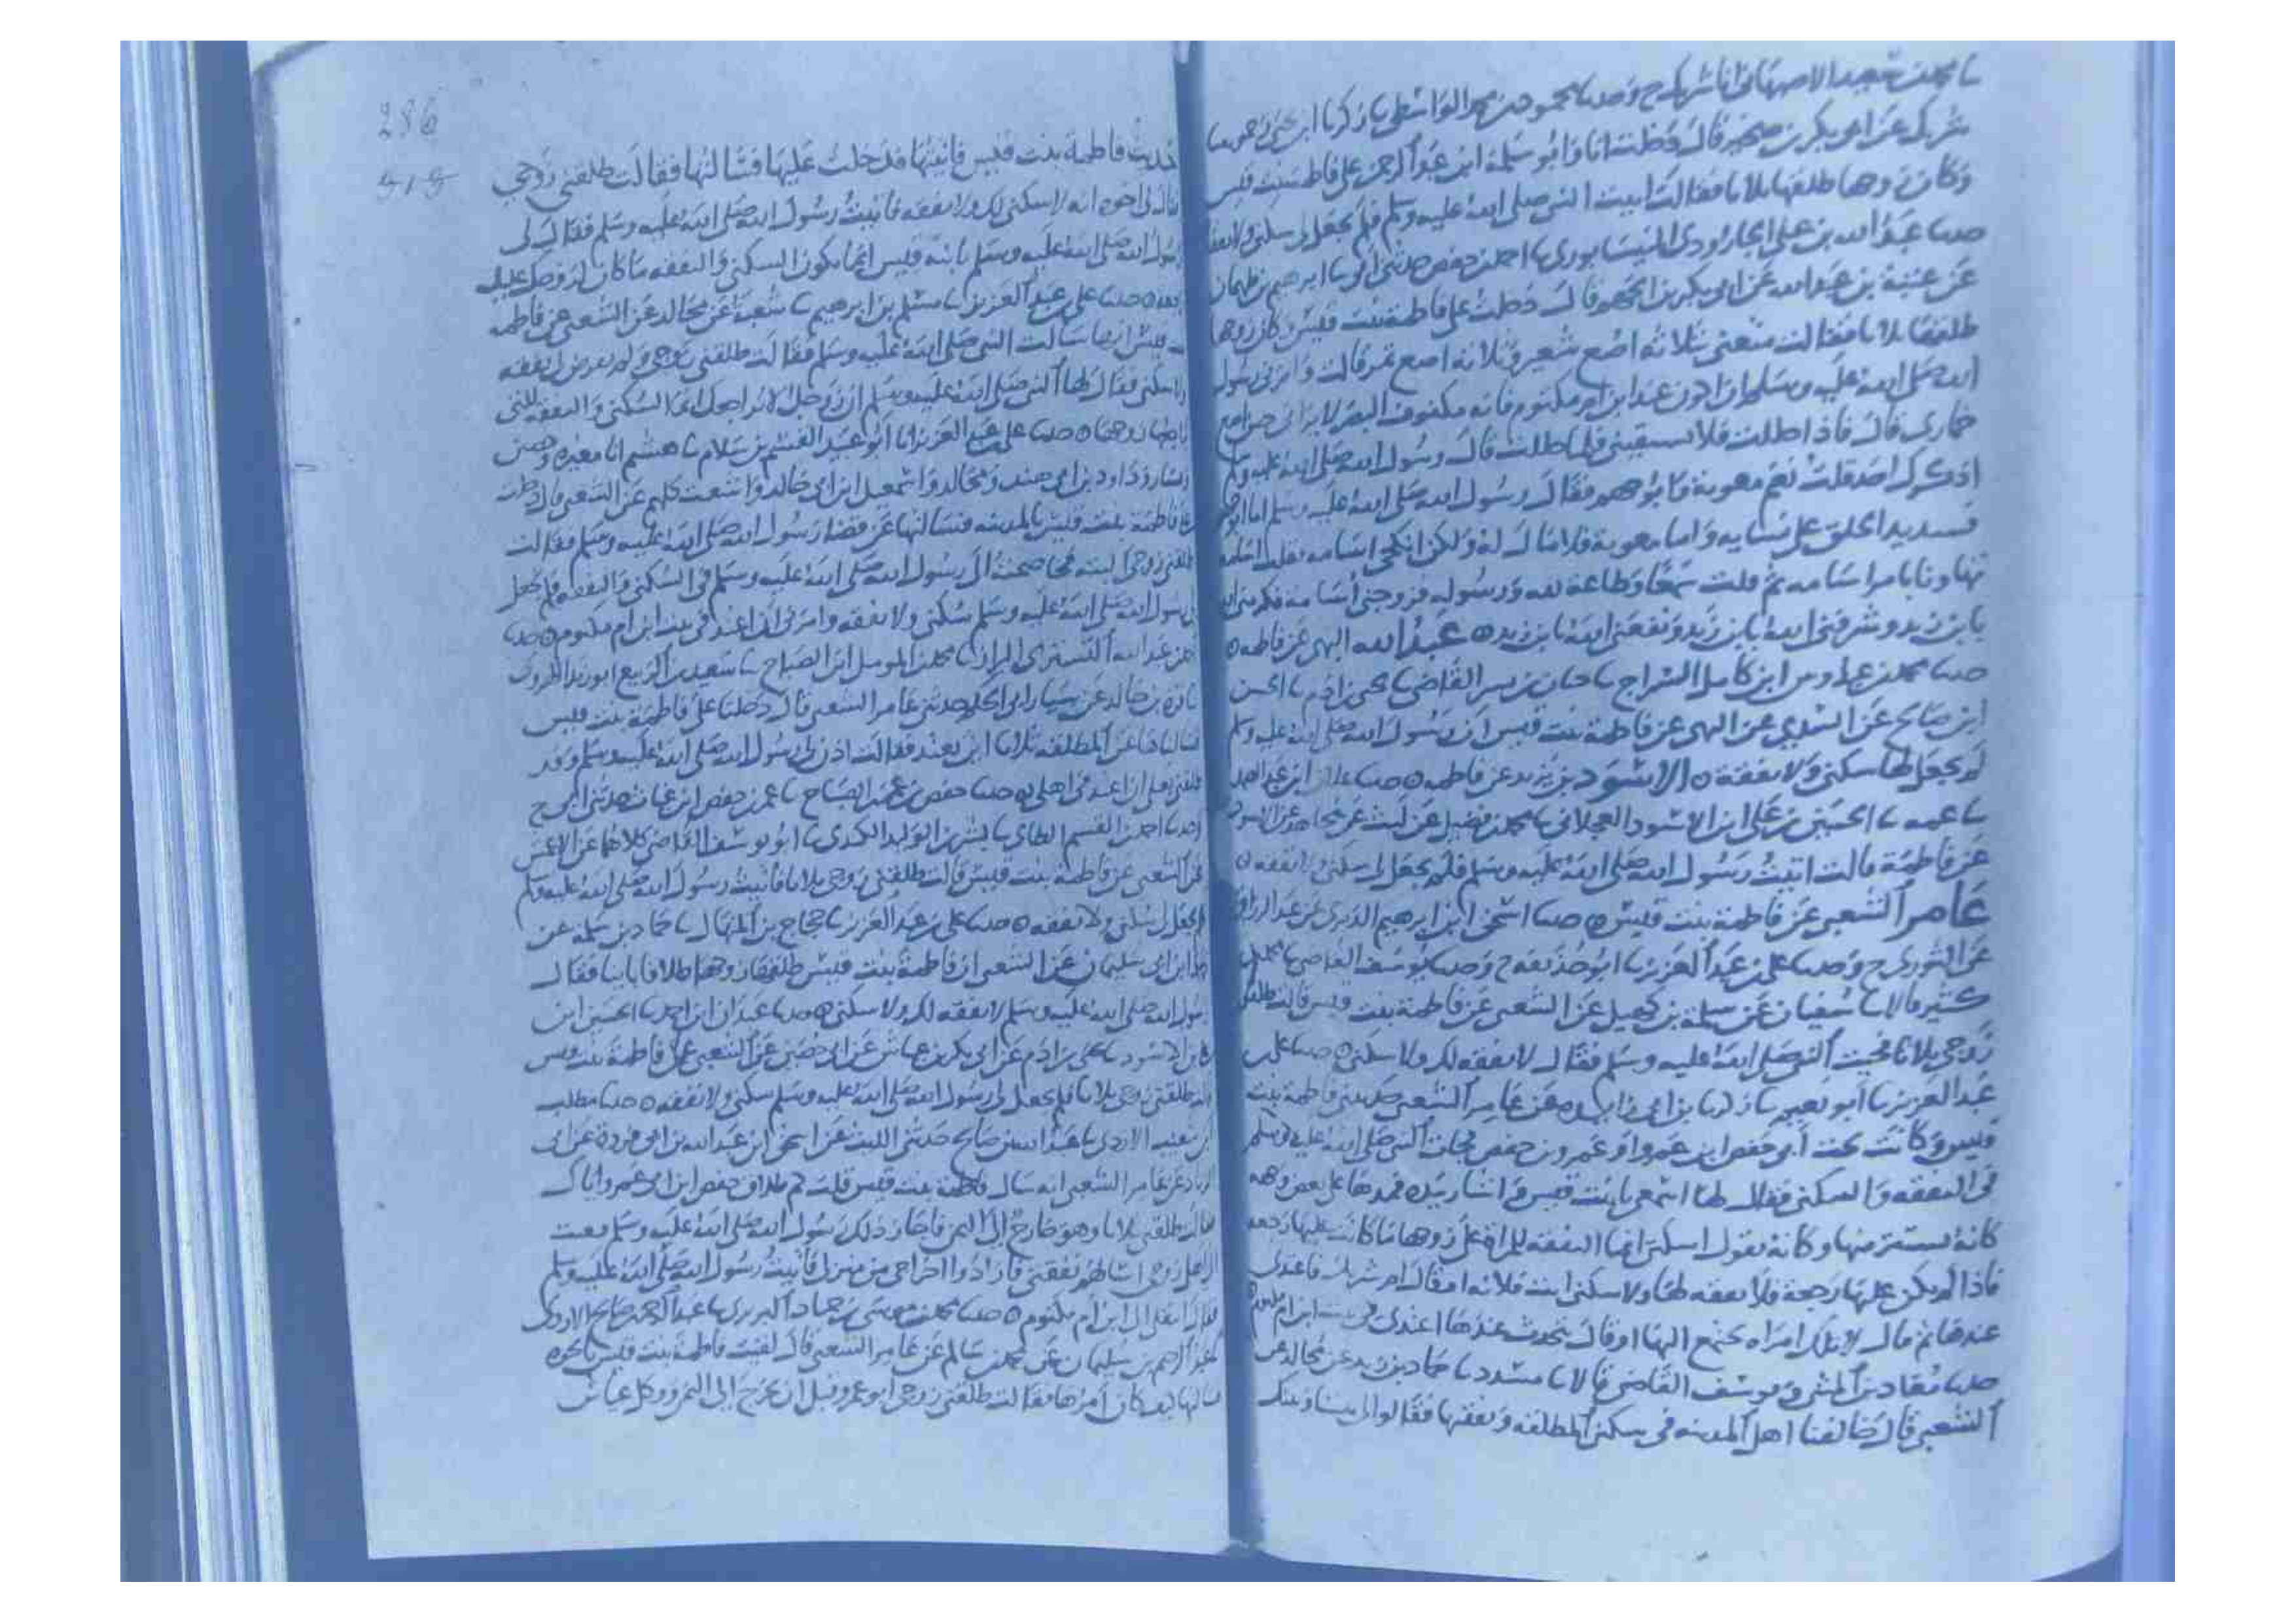 شريك عن ابى بكر بن صخير قال دخلت انا وابو سلمة ابن عبد الرحمن على فاطمة بنت قيس
وكان زوجها طلقها ثلاثا فقالت اتيت النبي صلى الله عليه وسلم فلم يجعل لى سكنى ولا نفقة
حدثنا عبد الله بن على الجارودى النيسابورى نا احمد بن حفص حدثنى ابى نا ابرهيم بن طهمان
عن عتبة بن عبد الله عن ابى بكر بن ابى الجهم قال دخلت على فاطمة بنت قيس وكان زوجها
طلقها ثلاثا فقالت متعنى ثلاثة اصع شعير وثلاثة اصع تمر قالت وامرنى رسول
الله صلى الله عليه وسلم ان اكون عند ابن ام مكتوم فانه مكفوف البصر لا يرانى حين اضع
خمارى قال فاذا حللت فلا تسبقينى فلما حللت قال رسول الله صلى الله عليه وسلم
اذكرك احد قلت نعم معوية وابو جهم فقال رسول الله صلى الله عليه وسلم اما ابو جهم
فشديد الخلق على نسايه واما معوية فلا مال له ولكن انكحى اسامه
تهاونا بامر اسامه ثم قلت سمعا وطاعة لله ورسوله فزوجنى اسامة فكرمنى الله
بابن زيد وشرفنى الله بابن زيد ونفعنى الله بابن زيد ه عبد الله البهى عن فاطمه ه
ابن صالح عن السدى عن البهى عن فاطمة بنت قيس ان رسول الله صلى الله عليه وسلم
لم يجعل لها سكنى ولا نفقة ه الاسود بن يزيد عن فاطمه ه
نا عمى نا الحسين بن على ابن الاسود العجلانى نا محمد بن فضيل عن ليث عن مجاهد عن الاسود
عن فاطمة قالت اتيت رسول الله صلى الله عليه وسلم فلم يجعل لى سكنى ولا نفقه ه
عامر الشعبى عن فاطمة بنت قيس ه حدثنا اسحق ابن ابرهيم الدبرى عن عبد الرزاق
عن الثورى ح وحدثنا على بن عبد العزيز نا ابو حذيفه ح وحدثنا يوسف القاضى نا محمد بن
كثير قالا نا سفيان عن سلمة بن كهيل عن الشعبى عن فاطمة بنت قيس قالت طلقنى
زوجى ثلاثا فجيت النبى صلى الله عليه وسلم فقال لا نفقه لك ولا سكنى ه حدثنا على بن
عبد العزيز نا ابو نعيم نا زكريا بن ابى زايده عن عامر الشعبى حدثتنى فاطمة بنت
قيس وكانت تحت ابى حفص ابن عمرو او عمرو بن حفص فجات النبى صلى الله عليه وسلم
فى النفقه والسكنى فقال لها اسمعى يا بنت قيس واشار بيده فمدها على بعض وجهه
كانه يستتر منها وكانه يقول اسكتى انما النفقة للمراة على زوجها ما كانت عليها رجعه
فاذا لم يكن عليها رجعة فلا نفقه لها ولا سكنى ايت فلانه او قال ام شريك فاعتدى
عندها ثم قال لا تلك امراه يجتمع اليها او قال يتحدث عندها اعتدى فى بيت ابن ام مكتوم ه
حدثنا معاذ بن المثنى ويوسف القاضى قالا نا مسدد نا حماد بن زيد عن مجالد عن
الشعبى قال خالفنا اهل المدينه فى سكنى المطلقه ونفقتها فقالوا لى بيننا وبينك
286
حديث فاطمة بنت قيس فاتيتها فدخلت عليها فسالتها فقالت طلقنى زوجى
فقال لى اخوه انه لا سكنى لك ولا نفقه فاتيت رسول الله صلى الله عليه وسلم فقال لى
رسول الله صلى الله عليه وسلم يا بنة قيس انما يكون السكنى والنفقه ما كان لزوجك عليك
رجعه ه حدثنا على بن عبد العزيز نا مسلم بن ابرهيم نا شعبة عن مجالد عن الشعبى عن فاطمه
بنت قيس انها سالت النبى صلى الله عليه وسلم فقالت طلقنى زوجى
ولا سكنى فقال لها النبى صلى الله عليه وسلم ان زوجك لا يراجعك انما السكنى والنفقه للتى
يراجعها زوجها ه حدثنا على بن عبد العزيز انا ابو عبيد القسم بن سلام نا هشيم انا مغيره وحصين
وسيار وداود بن ابى هند ومجالد واسمعيل ابن ابى خالد واشعث كلهم عن الشعبى قال دخلت
على فاطمة بنت قيس بالمدينه فسالتها عن قضا رسول الله صلى الله عليه وسلم فقالت
طلقنى زوجى البته فخاصمته الى رسول الله صلى الله عليه وسلم فى السكنى والنفقه فلم يجعل
لى رسول الله صلى الله عليه وسلم سكنى ولا نفقه وامرنى ان اعتد فى بيت ابن ام مكتوم ه حدثنا
قرة بن خالد عن سيار ابى الحكم حدثنى عامر الشعبى قال دخلنا على فاطمة بنت قيس
فسالناها عن المطلقه ثلاثا اين تعتد فقالت اذن لى رسول الله صلى الله عليه وسلم وقد
طلقنى بعلى ان اعتد فى اهلى ه حدثنا حفص بن عمر بن الصباح نا عمر بن حفص ابن غياث حدثنى ابى ح
وحدثنا احمد بن القسم الطاى نا بشر بن الوليد الكندى نا ابو يوسف القاضى كلاهما عن الاعمش
عن الشعبى عن فاطمة بنت قيس قالت طلقنى زوجى ثلاثا فاتيت رسول الله صلى الله عليه وسلم
فلم يجعل لى سكنى ولا نفقه ه حدثنا على بن عبد العزيز نا حجاج بن المنهال نا حماد بن سلمه عن
حماد ابن ابى سليمان عن الشعبى ان فاطمة بنت قيس طلقها زوجها طلاقا باينا فقال
رسول الله صلى الله عليه وسلم لا نفقه لك ولا سكنى ه حدثنا عبدان ابن احمد نا الحسين ابن
على بن الاسود نا يحيى بن ادم عن ابى بكر بن عياش عن ابى حصين عن الشعبى عن فاطمة بنت قيس
قالت طلقنى زوجى ثلاثا فلم يجعل لى رسول الله صلى الله عليه وسلم سكنى ولا نفقه ه حدثنا مطلب
ابن شعيب الازدى نا عبد الله بن صالح حدثنى الليث عن اسحق ابن عبد الله بن ابى فروة عن ابى
الزناد عن عامر الشعبى انه سال فاطمة بنت قيس قلت كم طلاق حفص ابن ابى عمرو اياك
فقالت طلقنى ثلاثا وهو خارج الى اليمن فاجاز ذلك رسول الله صلى الله عليه وسلم فبعثت
الى اهل زوجى اسالهم نفقتى فارادوا اخراجى من منزلى فاتيت رسول الله صلى الله عليه وسلم
فقال انتقلى الى ابن ام مكتوم ه حدثنا محمد بن موسى بن حماد البربرى نا عبد الرحمن بن صالح الازدى
نا عبد الرحيم بن سليمان عن محمد بن سالم عن عامر الشعبى قال لقيت فاطمة بنت قيس
فسالتها كيف كان امرها فقالت طلقنى زوجى ابو عمرو قبل ان يخرج الى اليمن ووكل عياش